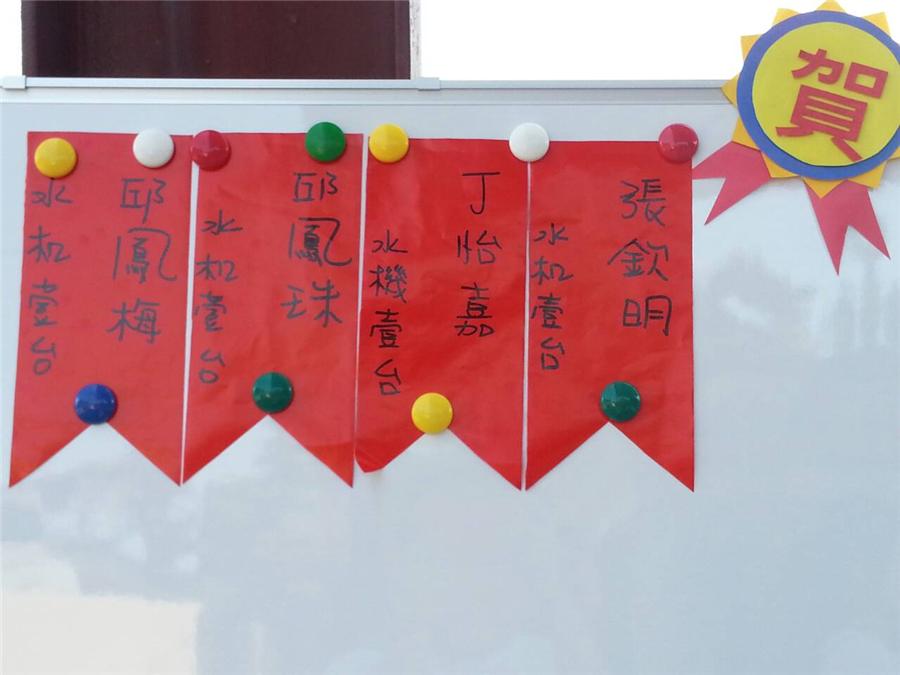 賀
張欽明
水机壹台
丁怡嘉
水機壹台
邱鳳珠
水机壹台
邱鳳梅
水机壹台